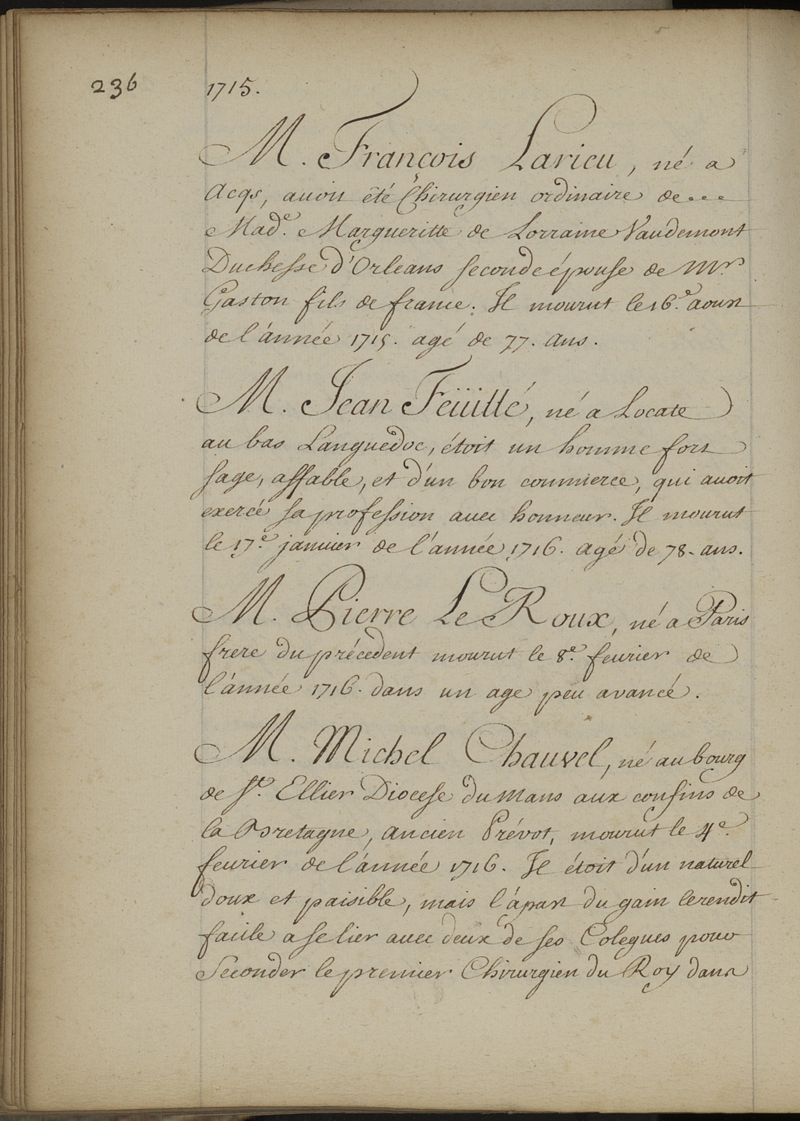 236
1715.
M. François Larieu, né a
Acqs, avoit été Chirurgien ordinaire de...
Made. Margueritte de Lorraine Vaudemont
Duchesse d'Orleans seconde épouse de Mr.
Gaston fils de france. Il mourut le 16.e aoust
de l'ánnée 1715. agé de 77. ans.
M. Jean Feüillé, né a Locate
au bas Languedoc, étoit un homme fort
sage, affable, et d'un bon commerce, qui avoit
exercé sa profession avec honneur. Il mourut
le 17.e janvier de l'ánnée 1716. agé de 78. ans.
M. Pierre Le Roux, né a Paris
frere du précedent mourut le 8.e fevrier de
l'ánnée 1716. dans un age peu avancé.
M. Michel Chauvel, né au bourg
de St. Ellier Diocese du Mans aux confins de
la Bretagne, ancien Prévot, mourut le 4.e
fevrier de l'ánnée 1716. Il étoit d'un naturel
doux et paisible, mais l'ápas du gain le rendit
facile a se lier avec deux de ses Colegues pour
Seconder le premier Chirurgien du Roy dans